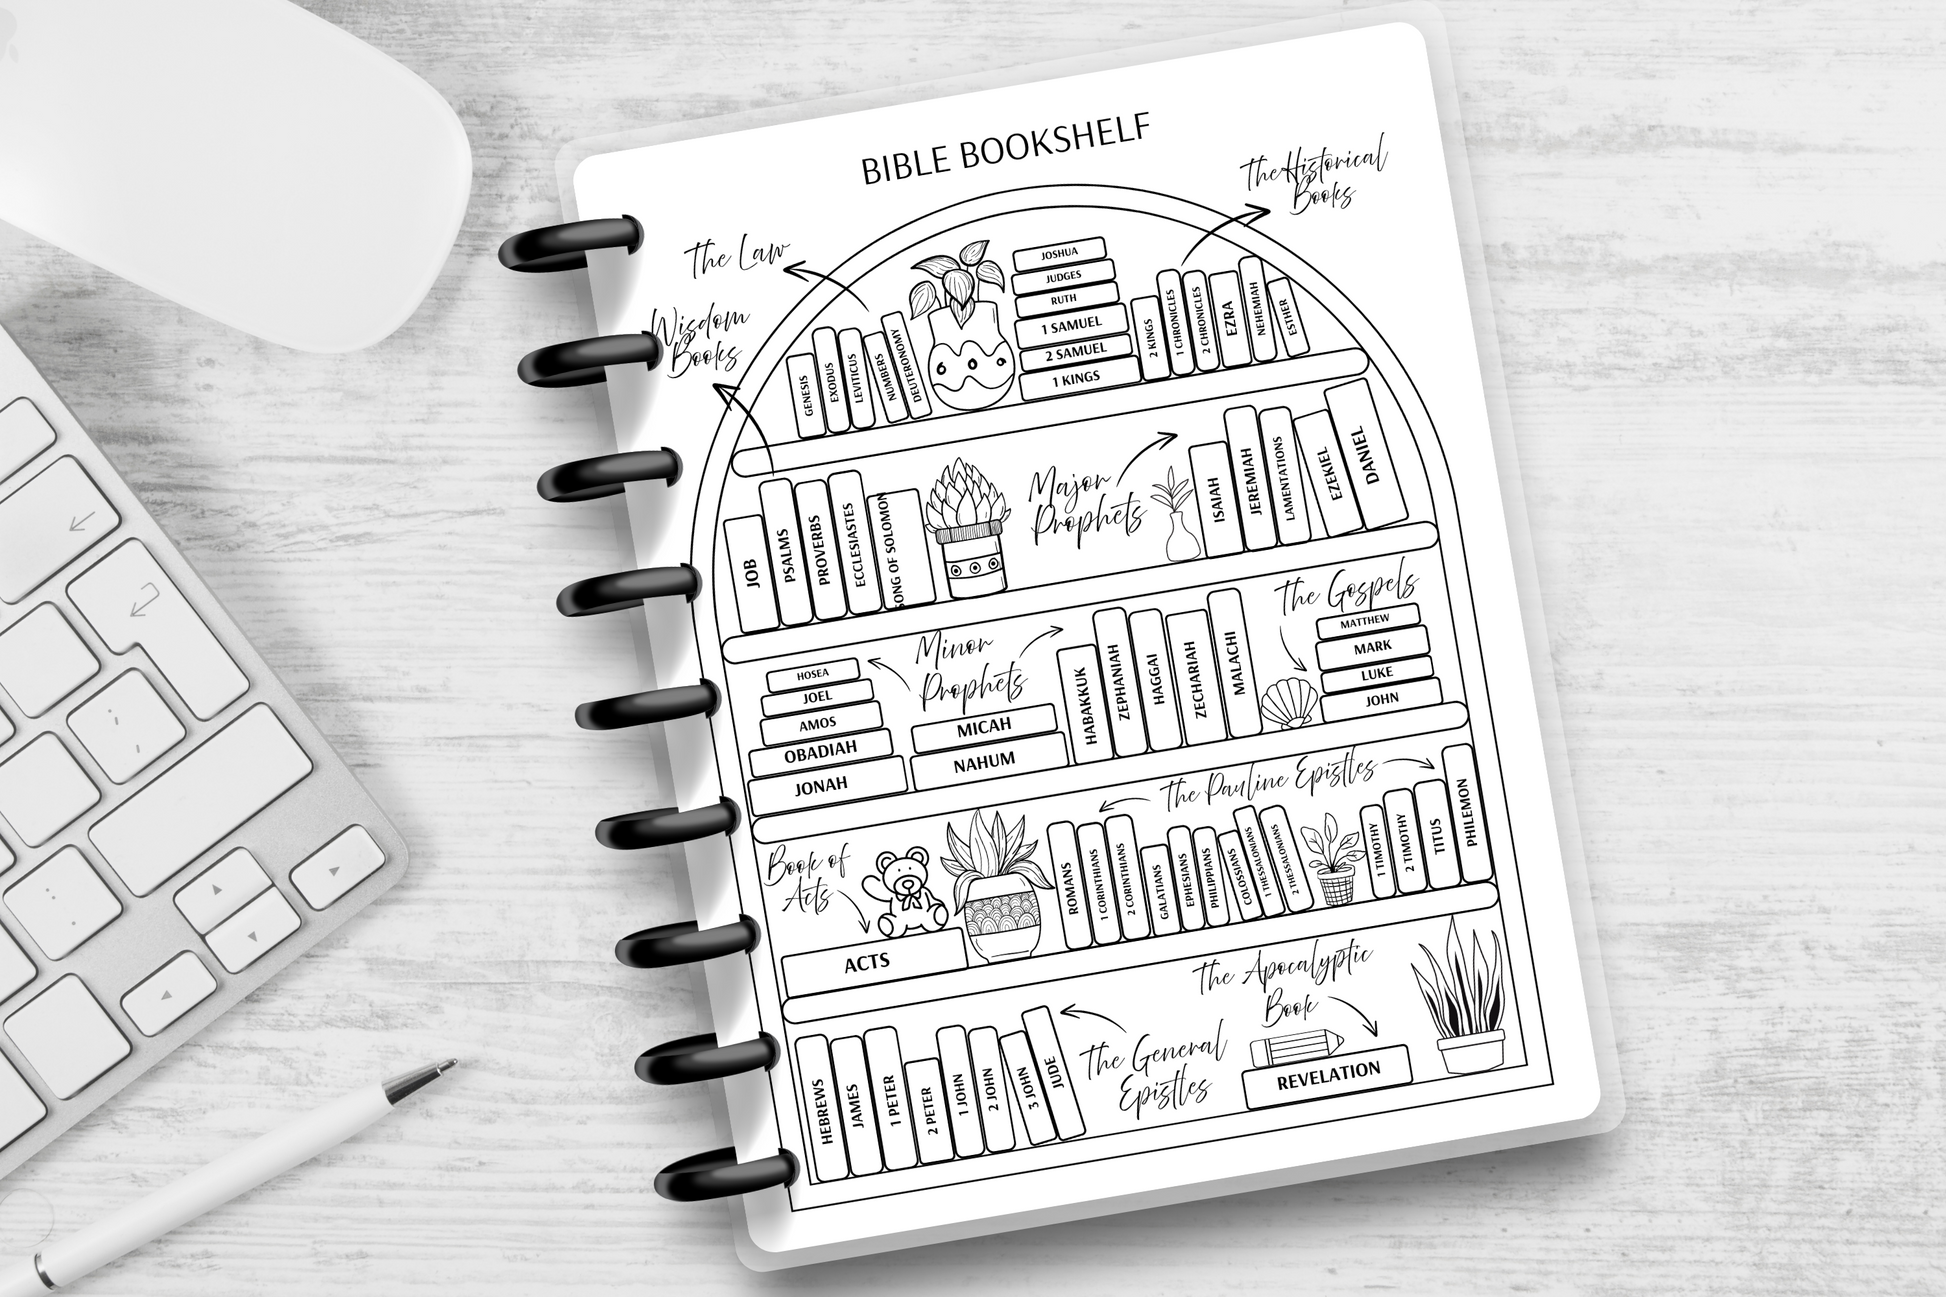 BIBLE BOOKSHELF
The Historical
Books
The Law
Wisdom
Books
GENESIS
EXODUS
LEVITICUS
NUMBERS
DEUTERONOMY
JOSHUA
JUDGES
RUTH
1 SAMUEL
2 SAMUEL
1 KINGS
2 KINGS
1 CHRONICLES
2 CHRONICLES
EZRA
NEHEMIAH
ESTHER
JOB
PSALMS
PROVERBS
ECCLESIASTES
SONG OF SOLOMON
Major
Prophets
ISAIAH
JEREMIAH
LAMENTATIONS
EZEKIEL
DANIEL
HOSEA
JOEL
AMOS
OBADIAH
JONAH
Minor
Prophets
MICAH
NAHUM
HABAKKUK
ZEPHANIAH
HAGGAI
ZECHARIAH
MALACHI
The Gospels
MATTHEW
MARK
LUKE
JOHN
Book of
Acts
ACTS
The Pauline Epistles
ROMANS
1 CORINTHIANS
2 CORINTHIANS
GALATIANS
EPHESIANS
PHILIPPIANS
COLOSSIANS
1 THESSALONIANS
2 THESSALONIANS
1 TIMOTHY
2 TIMOTHY
TITUS
PHILEMON
HEBREWS
JAMES
1 PETER
2 PETER
1 JOHN
2 JOHN
3 JOHN
JUDE
The General
Epistles
The Apocalyptic
Book
REVELATION